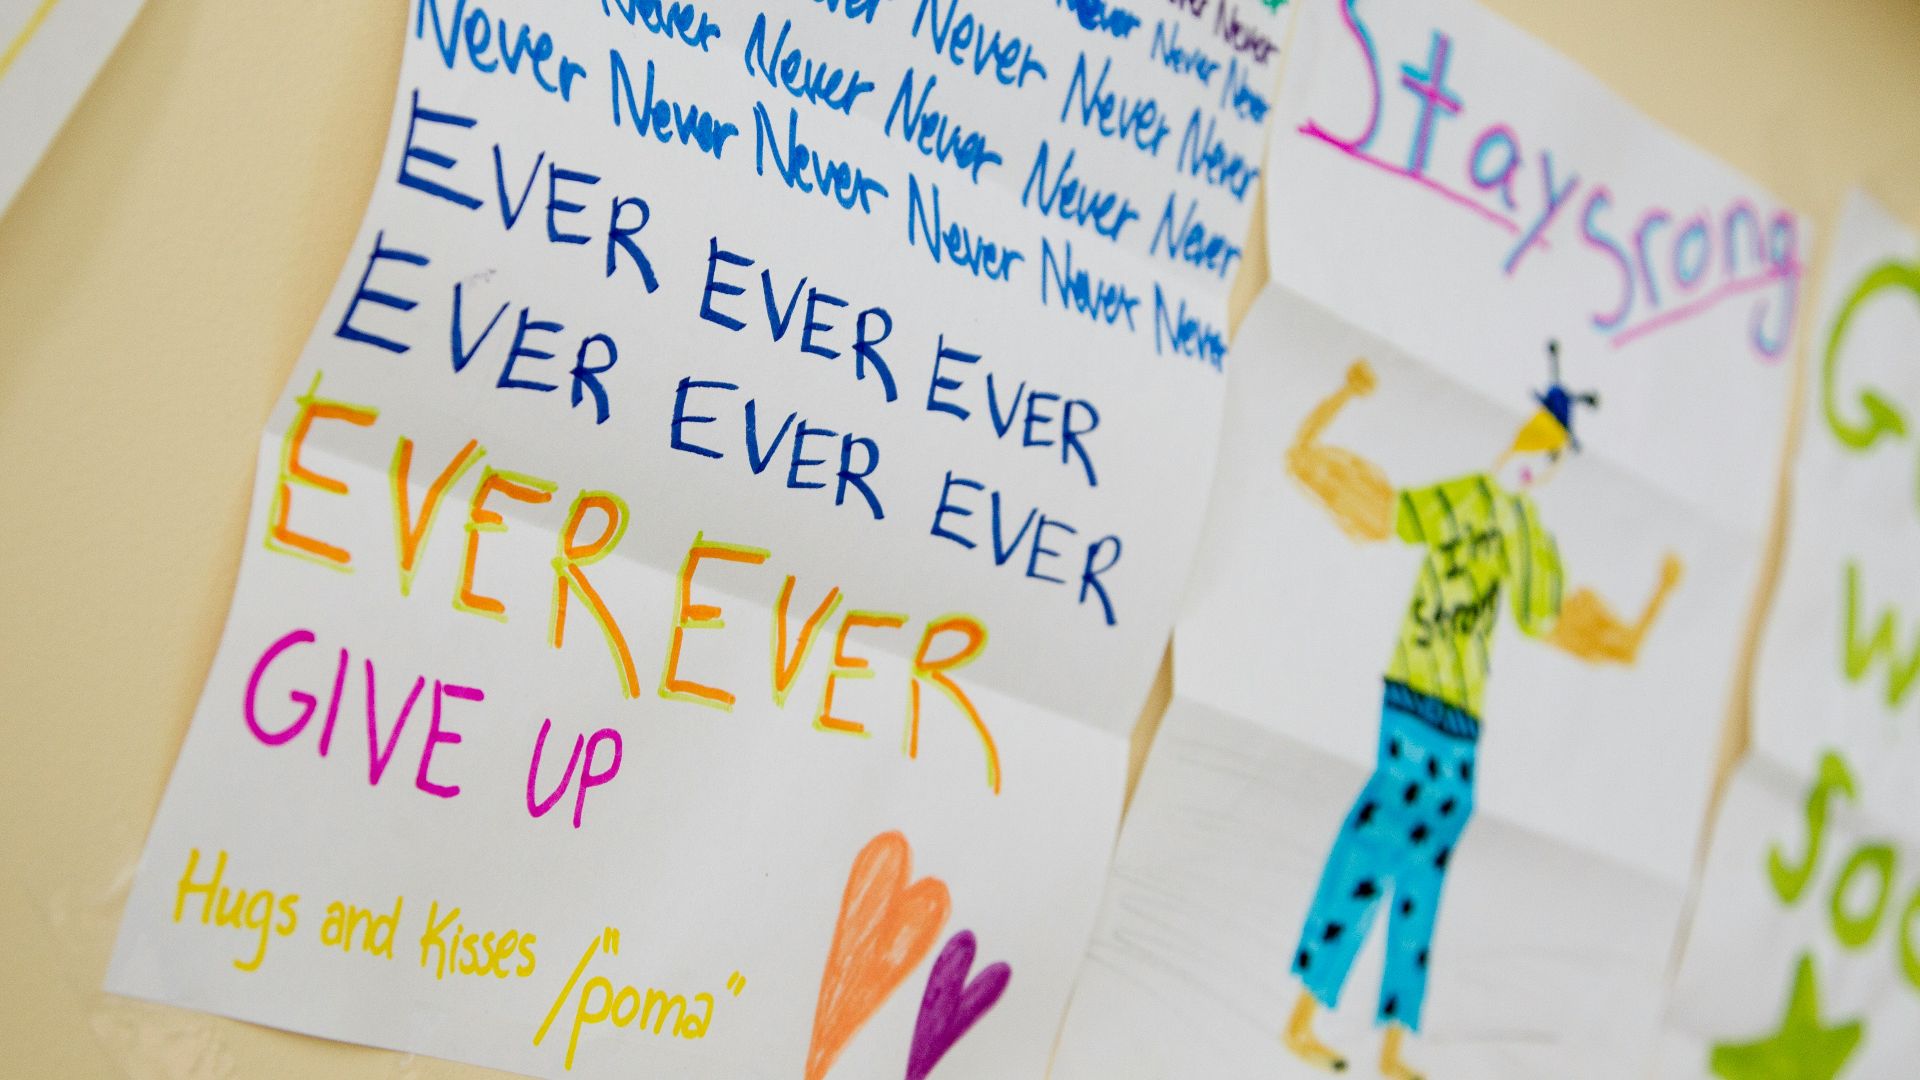 Never
Never Never Never
Never Never Never
Never Never Never Never Never
Never Never Never Never Never Never
EVER EVER EVER
EVER EVER EVER
EVER EVER
GIVE UP
Hugs and Kisses /"poma"
Stay Srong
I'm
strong